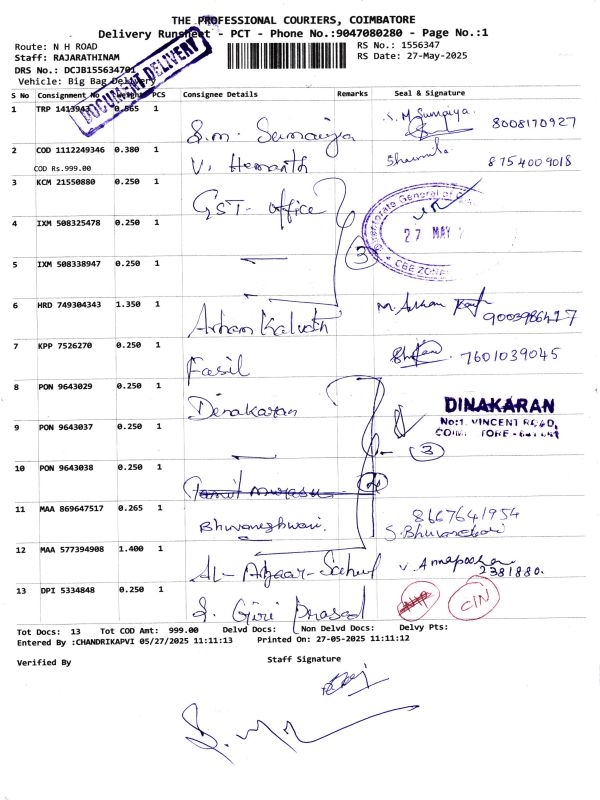 THE PROFESSIONAL COURIERS, COIMBATORE
Delivery Runsheet - PCT - Phone No.:9047080280 - Page No.:1
Route: N H ROAD
RS No.: 1556347
Staff: RAJARATHINAM
RS Date: 27-May-2025
DRS No.: DCJB155634701
Vehicle: Big Bag Delivery
DOCUMENT DELIVERY
S No Consignment No Weight PCS Consignee Details Remarks Seal & Signature
1 TRP 1413943 0.565 1 S.m. Sumaiya S.M Sumaiya 8008170927
2 COD 1112249346 0.380 1 V. Hemanth Sharmila 8754009018
COD Rs.999.00
3 KCM 21550880 0.250 1 GST- office
27 MAY
CBE ZONAL
4 IXM 508325478 0.250 1
3
5 IXM 508338947 0.250 1
6 HRD 749304343 1.350 1 Arham Kalvath 9003986477
7 KPP 7526270 0.250 1 Fasil 7601039045
8 PON 9643029 0.250 1 Dinakaran
DINAKARAN
No:1, VINCENT ROAD,
9 PON 9643037 0.250 1
3
10 PON 9643038 0.250 1
11 MAA 869647517 0.265 1 Bhuvaneshwari. 8667641954
S. Bhuvaneshwari
12 MAA 577394908 1.400 1 V. Annapoorna
2381880.
13 DPI 5334848 0.250 1 S. Giri Prasad CIN
Tot Docs: 13 Tot COD Amt: 999.00 Delvd Docs: Non Delvd Docs: Delvy Pts:
Entered By :CHANDRIKAPVI 05/27/2025 11:11:13 Printed On: 27-05-2025 11:11:12
Verified By
Staff Signature